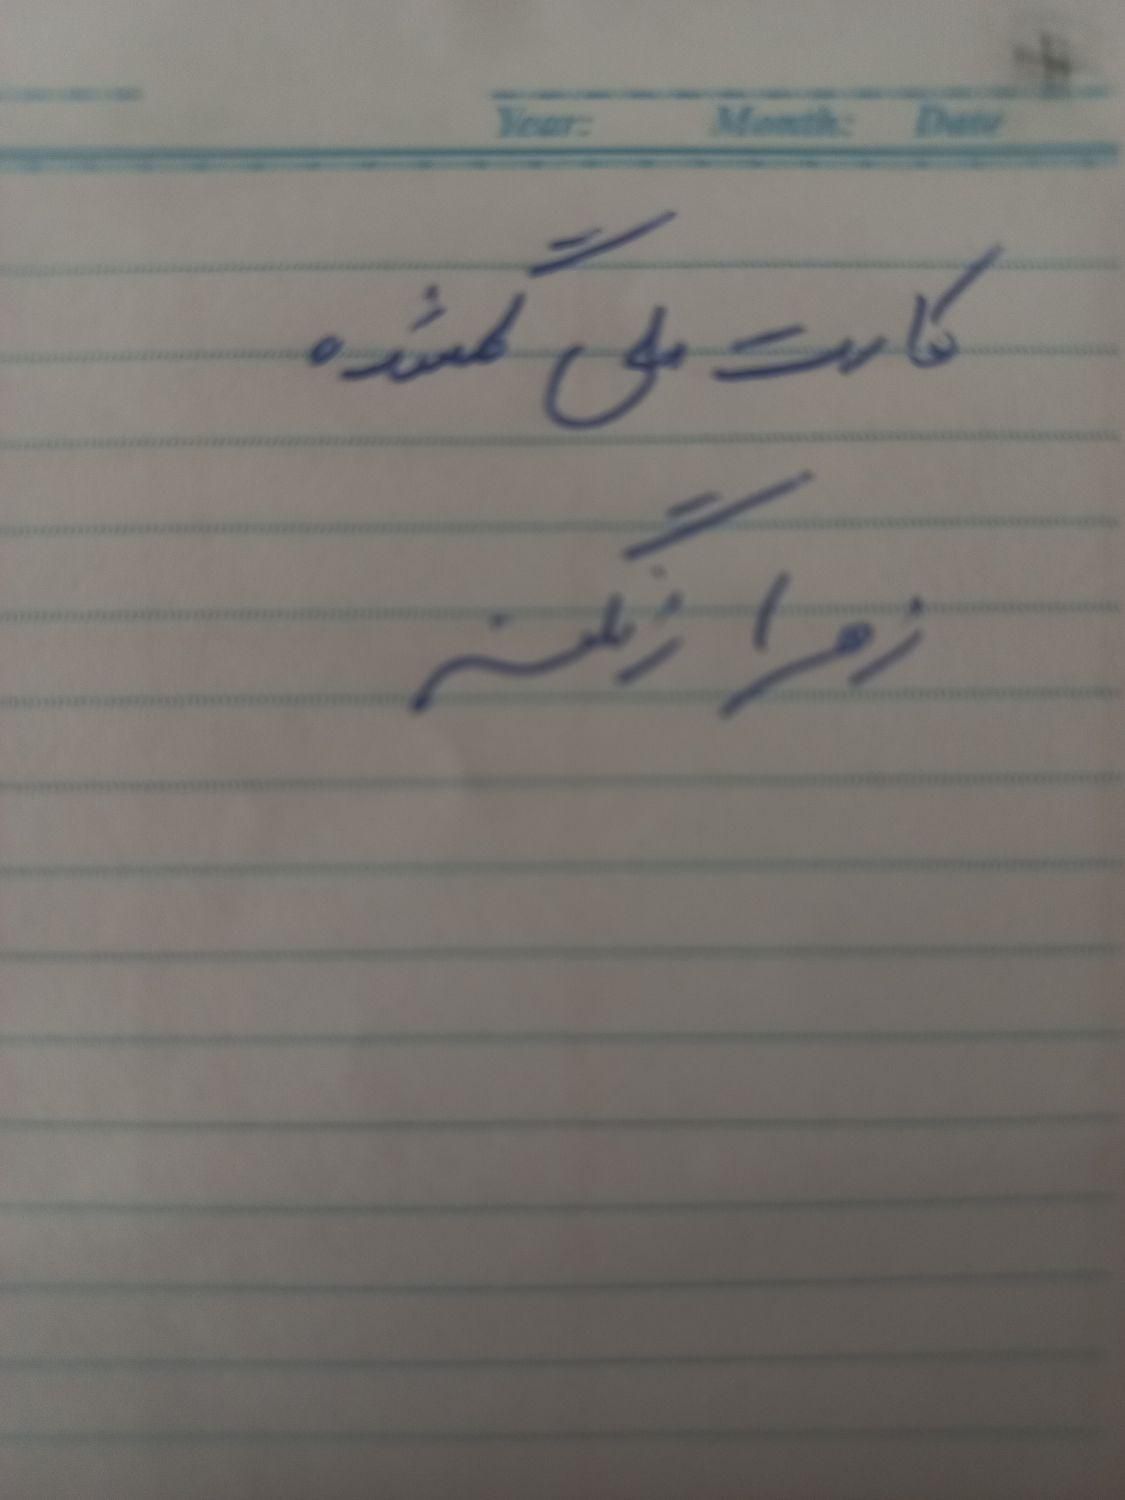 Year: Month: Date
کارت ملی گمشده
زهرا